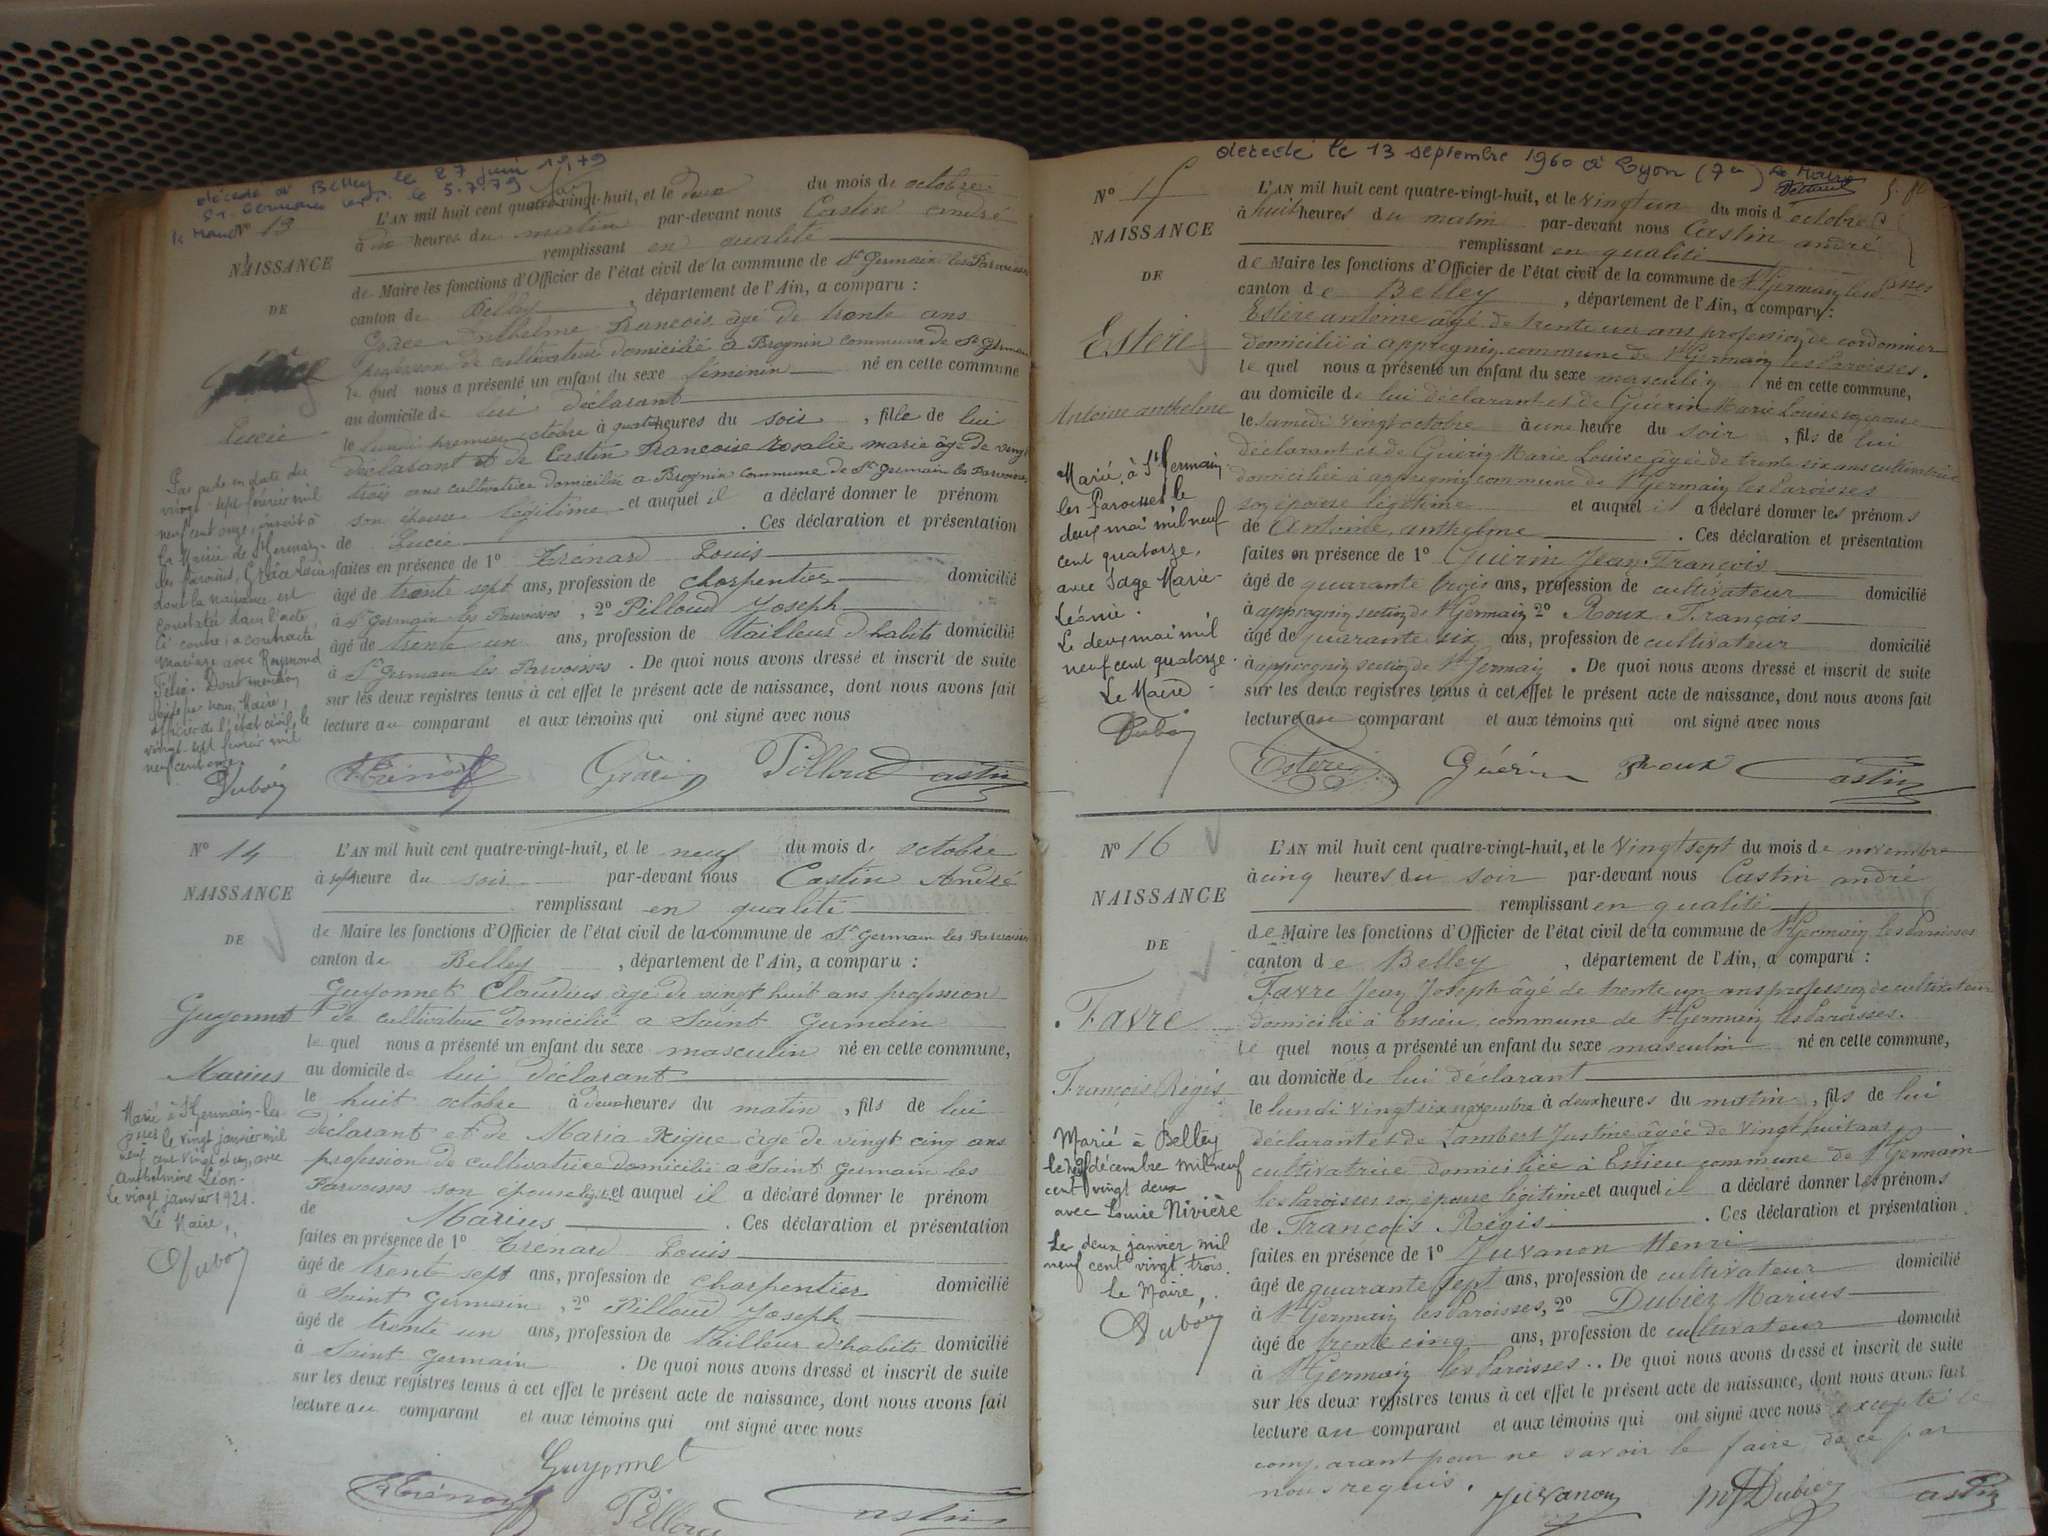 décédé à Belley le 27 juin 1979
St Germain les P. le 5.7.79
le Maire
N° 13
NAISSANCE
DE
Grâce
Lucie
L'AN mil huit cent quatre-vingt-huit, et le deux du mois de octobre
à heures du matin par-devant nous Castin André
remplissant en qualité
de Maire les fonctions d'Officier de l'état civil de la commune de St Germain les Paroisses
canton de Belley, département de l'Ain, a comparu :
Grâce Anthelme François, âgé de trente ans
profession de cultivateur domicilié à Brognin commune de St Germain
le quel nous a présenté un enfant du sexe féminin né en cette commune
au domicile de lui déclarant
le lundi premier octobre à quatre heures du soir, fille de lui
déclarant et de Castin Françoise rosalie marie âgé de vingt
trois ans cultivatrice domiciliée a Brognin commune de St Germain les Parroisses
son épouse légitime et auquel il a déclaré donner le prénom
de Lucie. Ces déclaration et présentation
faites en présence de 1° Trénard Louis
âgé de trente sept ans, profession de charpentier domicilié
à St Germain les Parroisses, 2° Pilloud Joseph
âgé de trente un ans, profession de tailleur d'habits domicilié
à St Germain les Parroisses. De quoi nous avons dressé et inscrit de suite
sur les deux registres tenus à cet effet le présent acte de naissance, dont nous avons fait
lecture au comparant et aux témoins qui ont signé avec nous
Par acte en date du
vingt-sept février mil
neuf cent onze, inscrit à
la Mairie de St Germain-
les Paroisses, Grâce Lucie,
dont la naissance est
constatée dans l'acte
ci contre, a contracté
mariage avec Raymond
Félix. Dont mention
faite par nous, Maire,
officier de l'état civil, le
vingt-sept février mil
neuf cent onze.
Dubois
Trénard Grâce Pilloud Castin
N° 14
NAISSANCE
DE
Guyonnet
Marius
L'AN mil huit cent quatre-vingt-huit, et le neuf du mois de octobre
à sept heure du soir par-devant nous Castin André
remplissant en qualité
de Maire les fonctions d'Officier de l'état civil de la commune de St Germain les Parroisses
canton de Belley, département de l'Ain, a comparu :
Guyonnet Claudius, âgé de vingt huit ans profession
de cultivateur domicilié a Saint Germain
le quel nous a présenté un enfant du sexe masculin né en cette commune,
au domicile de lui déclarant
le huit octobre à deux heures du matin, fils de lui
déclarant et de Maria Rique âgé de vingt cinq ans
profession de cultivatrice domicilié a Saint Germain les
Parroisses son épouse légit. et auquel il a déclaré donner le prénom
de Marius. Ces déclaration et présentation
faites en présence de 1° Trénard Louis
âgé de trente sept ans, profession de charpentier domicilié
à Saint Germain, 2° Pilloud Joseph
âgé de trente un ans, profession de tailleur d'habits domicilié
à Saint Germain. De quoi nous avons dressé et inscrit de suite
sur les deux registres tenus à cet effet le présent acte de naissance, dont nous avons fait
lecture au comparant et aux témoins qui ont signé avec nous
Marié à St Germain-les
psses le vingt janvier mil
neuf cent vingt et un, avec
Anthelmine Léon.
Le vingt janvier 1921.
Le Maire,
Dubois
Guyonnet
Trénard Pilloud Castin
décédé le 13 septembre 1960 à Lyon (7e) Le Maire
N° 15
NAISSANCE
DE
Estère
Antoine anthelme
L'AN mil huit cent quatre-vingt-huit, et le vingt un du mois d'octobre
à huit heures du matin par-devant nous Castin andré
remplissant en qualité
de Maire les fonctions d'Officier de l'état civil de la commune de St Germain les psses
canton de Belley, département de l'Ain, a comparu :
Estère antoine âgé de trente un ans profession de cordonnier
domicilié à appregnin commune de St Germain les Paroisses.
le quel nous a présenté un enfant du sexe masculin né en cette commune,
au domicile de lui déclarant et de Guérin Marie Louise son épouse
le samedi vingt octobre à une heure du soir, fils de lui
déclarant et de Guérin Marie Louise âgée de trente six ans cultivatrice
domiciliée à appregnin commune de St Germain les Paroisses
son épouse légitime et auquel il a déclaré donner les prénoms
de Antoine, anthelme. Ces déclaration et présentation
faites en présence de 1° Guérin Jean François
âgé de quarante trois ans, profession de cultivateur domicilié
à appregnin section de St Germain 2° Roux François
âgé de quarante six ans, profession de cultivateur domicilié
à appregnin section de St Germain. De quoi nous avons dressé et inscrit de suite
sur les deux registres tenus à cet effet le présent acte de naissance, dont nous avons fait
lecture au comparant et aux témoins qui ont signé avec nous
Marié, à St Germain
les Paroisses le
deux mai mil neuf
cent quatorze,
avec Sage Marie-
Léonie.
Le deux mai mil
neuf cent quatorze.
Le Maire
Dubois
Estère Guérin Roux Castin
N° 16
NAISSANCE
DE
Favre
François Régis
L'AN mil huit cent quatre-vingt-huit, et le vingt sept du mois de novembre
à cinq heures du soir par-devant nous Castin andré
remplissant en qualité
de Maire les fonctions d'Officier de l'état civil de la commune de St Germain les Paroisses
canton de Belley, département de l'Ain, a comparu :
Favre Jean Joseph âgé de trente un ans profession de cultivateur
domicilié à Essieu commune de St Germain les Paroisses.
le quel nous a présenté un enfant du sexe masculin né en cette commune,
au domicile de lui déclarant
le lundi vingt six novembre à deux heures du matin, fils de lui
déclarant et de Lambert Justine âgée de vingt huit ans
cultivatrice domiciliée à Essieu commune de St Germain
les Paroisses son épouse légitime et auquel il a déclaré donner les prénoms
de François Régis. Ces déclaration et présentation
faites en présence de 1° Juvanon Henri
âgé de quarante sept ans, profession de cultivateur domicilié
à St Germain les Paroisses, 2° Dubiez Marius
âgé de trente cinq ans, profession de cultivateur domicilié
à St Germain les Paroisses.. De quoi nous avons dressé et inscrit de suite
sur les deux registres tenus à cet effet le présent acte de naissance, dont nous avons fait
lecture au comparant et aux témoins qui ont signé avec nous excepté le
comparant pour ne savoir le faire de ce par
nous requis.
Marié à Belley
le neuf décembre mil neuf
cent vingt deux
avec Louise Nivière
Le deux janvier mil
neuf cent vingt trois.
le Maire,
Dubois
Juvanon M Dubiez Castin